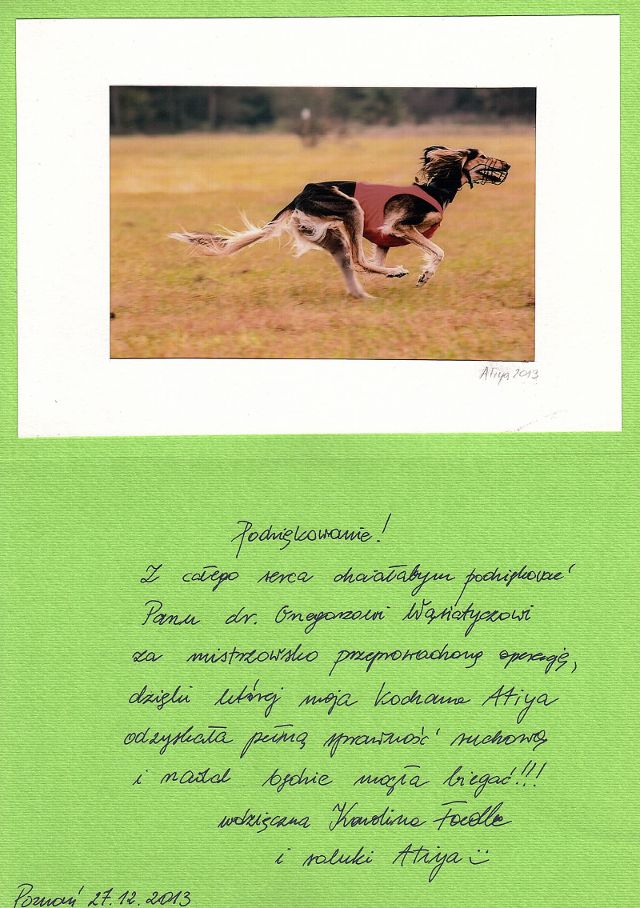 Atiya 2013
Podziękowanie!
Z całego serca chciałabym podziękować
Panu dr. Grzegorzowi Wąsiatyczowi
za mistrzowsko przeprowadzoną operację,
dzięki której moja kochana Atiya
odzyskała pełną sprawność ruchową
i nadal będzie mogła biegać!!!
wdzięczna Karolina
i saluki Atiya :)
Poznań 27.12.2013